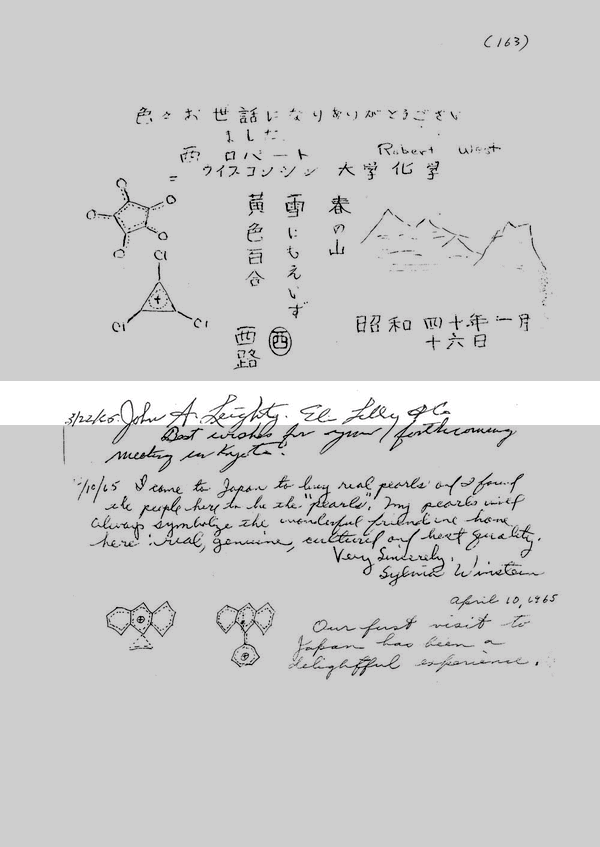 (163)
色々お世話になりありがとうござい
ました
西 ロバート Robert West
ウイスコンシン 大学 化学
春の山
雪にもえいず
黄色百合
西路
西
O
O
O
O
O
Cl
Cl
Cl
+
昭和四十年一月
十六日
3/22/65. John A. Leighty. Eli Lilly & Co
Best wishes for your forthcoming
meeting in Kyoto!
/10/65 I came to Japan to buy real pearls and I found
the people here to be the "pearls". My pearls will
always symbolize the wonderful friends we have
here: real, genuine, cultured and best quality.
Very Sincerely,
Sylvia Winstein
April 10, 1965
Our first visit to
Japan has been a
delightful experience.
⊕
⊕